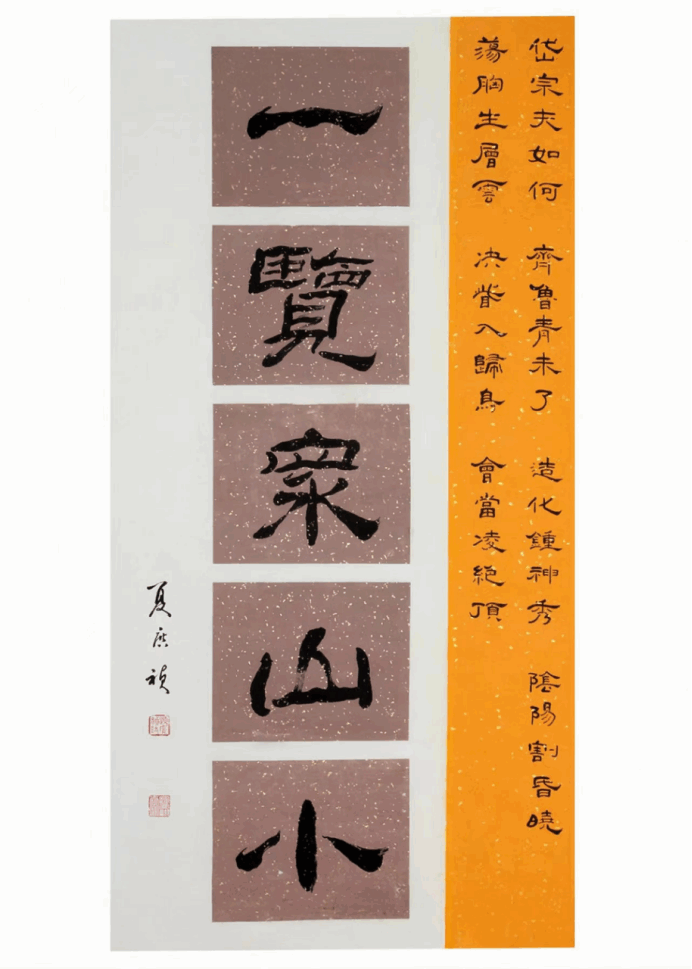 岱宗夫如何 齊魯青未了 造化鍾神秀 陰陽割昏曉
蕩胸生層雲 決眥入歸鳥 會當凌絕頂
一覽眾山小
夏